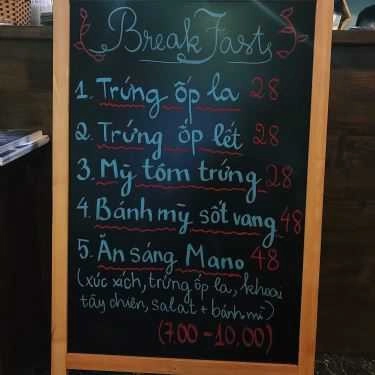 BreakFast
1. Trứng ốp la 28
2. Trứng ốp lết 28
3. Mỳ tôm trứng 28
4. Bánh mỳ sốt vang 48
5. Ăn sáng Mano 48
(xúc xích, trứng ốp la, khoai
tây chiên, salat + bánh mì)
(7.00 - 10.00)